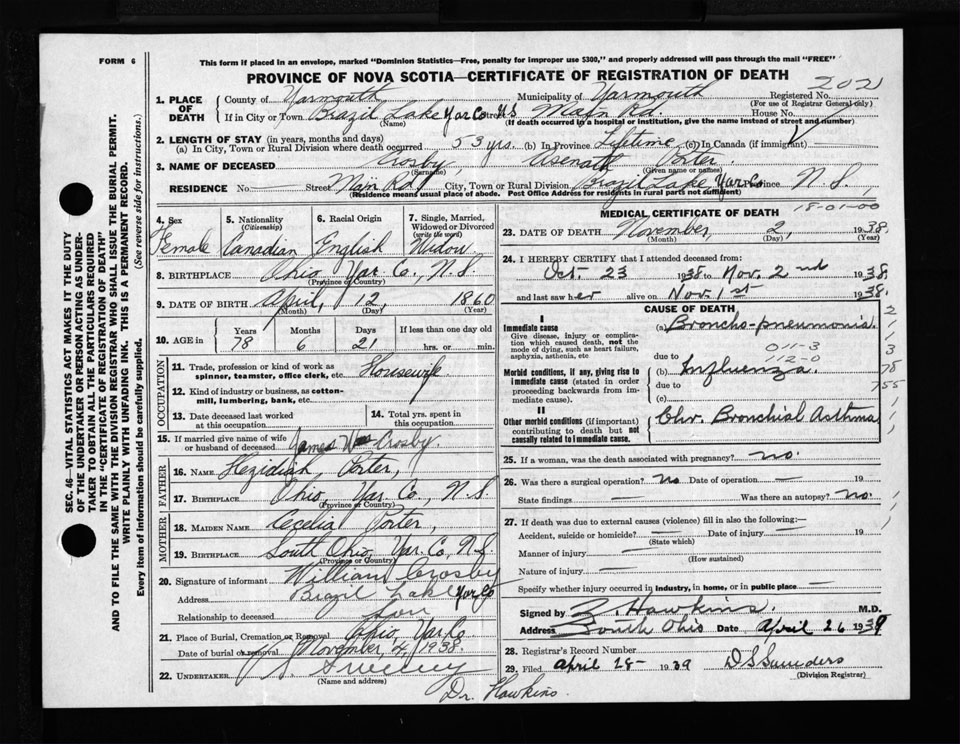 FORM 6
This form if placed in an envelope, marked "Dominion Statistics—Free, penalty for improper use $300," and properly addressed will pass through the mail "FREE"
PROVINCE OF NOVA SCOTIA—CERTIFICATE OF REGISTRATION OF DEATH
2021
1. PLACE OF DEATH
County of Yarmouth Municipality of Yarmouth Registered No.
(For use of Registrar General only)
If in City or Town Brazil Lake Yar Co Street Main Rd. House No.
(Name) (If death occurred in a hospital or institution, give the name instead of street and number)
2. LENGTH OF STAY (in years, months and days)
(a) In City, Town or Rural Division where death occurred 53 yrs. (b) In Province Lifetime (c) In Canada (if immigrant)
3. NAME OF DECEASED Crosby, Asenath Porter
(Surname) (Given name or names)
RESIDENCE No. — Street Main Rd City, Town or Rural Division Brazil Lake, Yar. Co. Province N. S.,
(Residence means usual place of abode. Post Office Address for residents in rural parts not sufficient)
4. Sex
Female
5. Nationality
(Citizenship)
Canadian
6. Racial Origin
English
7. Single, Married, Widowed or Divorced
(write the word)
Widow
8. BIRTHPLACE Ohio Yar Co., N.S.
(Province or Country)
9. DATE OF BIRTH April, 12, 1860
(Month) (Day) (Year)
10. AGE in
Years Months Days If less than one day old
78 6 21 hrs. or min.
OCCUPATION
11. Trade, profession or kind of work as spinner, teamster, office clerk, etc. Housewife
12. Kind of industry or business, as cotton-mill, lumbering, bank, etc.
13. Date deceased last worked at this occupation
14. Total yrs. spent in this occupation
15. If married give name of wife or husband of deceased James Wm Crosby.
FATHER
16. NAME Hezidiah Porter,
17. BIRTHPLACE Ohio, Yar. Co., N.S.
(Province or Country)
MOTHER
18. MAIDEN NAME Cecelia Porter,
19. BIRTHPLACE South Ohio, Yar. Co., N.S.
(Province or Country)
20. Signature of informant William Crosby
Address Brazil Lake Yar Co
Relationship to deceased Son
21. Place of Burial, Cremation or Removal Ohio, Yar Co.
Date of burial or removal November 4, 1938.
22. UNDERTAKER Sweeney
(Name and address)
Dr. Hawkins.
MEDICAL CERTIFICATE OF DEATH
18-01-00
23. DATE OF DEATH November, 2, 1938.
(Month) (Day) (Year)
24. I HEREBY CERTIFY that I attended deceased from:
Oct. 23 1938 to Nov. 2nd 1938.
and last saw her alive on Nov. 1st 1938.
CAUSE OF DEATH
I
Immediate cause
Give disease, injury or complication which caused death, not the mode of dying, such as heart failure, asphyxia, asthenia, etc
(a) Broncho-pneumonia.
011-3
112-0
due to
Morbid conditions, if any, giving rise to immediate cause (stated in order proceeding backwards from immediate cause).
(b) Influenza.
due to
(c)
II
Other morbid conditions (if important) contributing to death but not causally related to immediate cause.
Chr. Bronchial Asthma
2
1
1
3
78
755
25. If a woman, was the death associated with pregnancy? no.
26. Was there a surgical operation? no Date of operation — 19
State findings — Was there an autopsy? no.
27. If death was due to external causes (violence) fill in also the following:—
Accident, suicide or homicide? — Date of injury — 19
(State which)
Manner of injury —
(How sustained)
Nature of injury —
Specify whether injury occurred in industry, in home, or in public place —
Signed by Z. Hawkins. M.D.
Address South Ohio Date April 26 1939
28. Registrar's Record Number
29. Filed April 28- 1939 D S Saunders
(Division Registrar)
SEC. 46—VITAL STATISTICS ACT MAKES IT THE DUTY OF THE UNDERTAKER OR PERSON ACTING AS UNDERTAKER TO OBTAIN ALL THE PARTICULARS REQUIRED IN THE "CERTIFICATE OF REGISTRATION OF DEATH" AND TO FILE THE SAME WITH THE DIVISION REGISTRAR WHO SHALL ISSUE THE BURIAL PERMIT.
WRITE PLAINLY WITH UNFADING INK. THIS IS A PERMANENT RECORD.
Every item of Information should be carefully supplied. (See reverse side for instructions.)